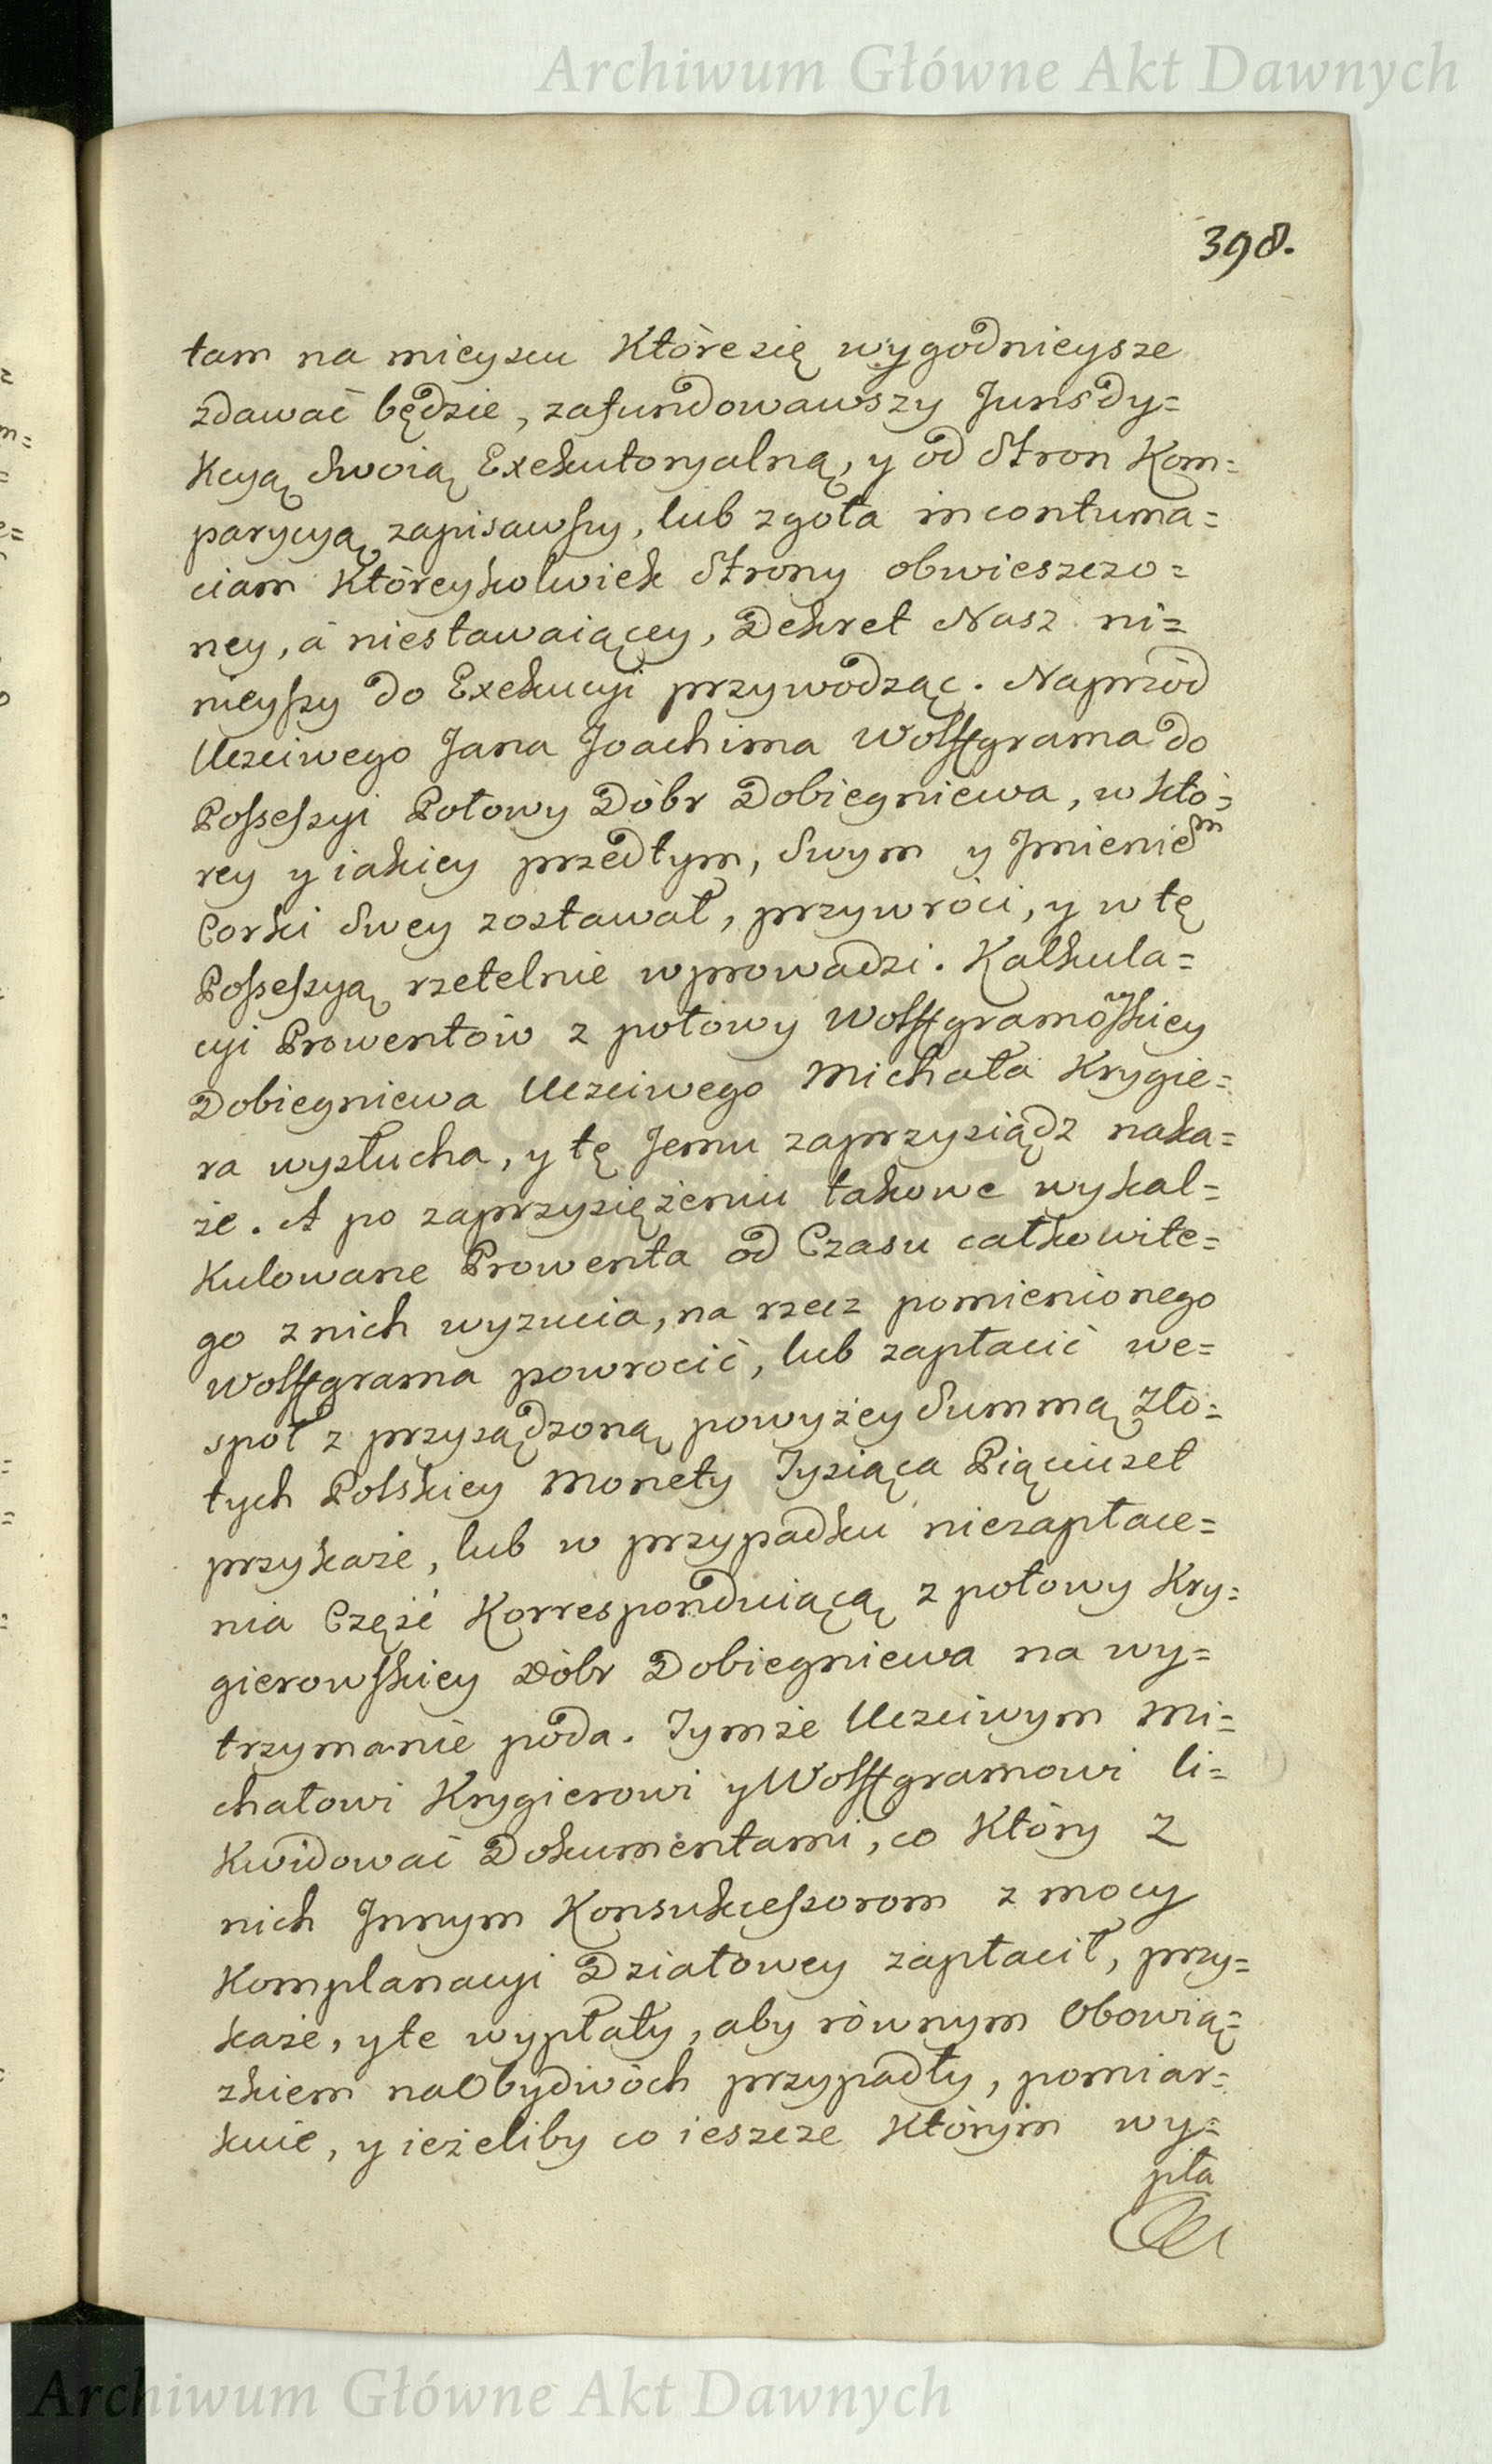 Archiwum Główne Akt Dawnych
398.
tam na mieyscu które się wygodnieysze
zdawać będzie, zafundowawszy Jurisdy=
kcyą Swoią Exekutoryalną, y od Stron Kom=
parycyą zapisawszy, lub zgoła in contuma=
ciam któreykolwiek Strony obwieszczo=
ney, á niestawaiącey, Dekret Nasz ni=
nieyszy do Exekucyi przywodząc. Naprzód
Uczciwego Jana Joachima Wolffgrama do
Possessyi Połowy Dóbr Dobiegniewa, w któ=
rey y iakiey przedtym, Swym y Jmieniem
Corki Swey zostawał, przywróci, y w tę
Possessyą rzetelnie wprowadzi. Kalkula=
cyi Prowentów z połowy Wolffgramowskiey
Dobiegniewa Uczciwego Michała Krygie=
ra wysłucha, y tę Jemu zaprzysiądz naka=
że. A po zaprzysiężeniu takowe wykal=
kulowane Prowenta od Czasu całkowite=
go z nich wyzucia, na rzecz pomienionego
Wolffgrama powrocić, lub zapłacić we=
społ z przysądzoną powyżey Summą Zło=
tych Polskiey Monety Tysiąca Pięciuset
przykaże, lub w przypadku niezapłace=
nia Część Korresponduiącą z połowy Kry=
gierowskiey Dóbr Dobiegniewa na wy=
trzymanie poda. Tymże Uczciwym Mi=
chałowi Krygierowi y Wolffgramowi li=
kwidować Dokumentami, co który z
nich Innym Konsukcessorom z mocy
Komplanacyi Działowey zapłacił, przy=
każe, y te wypłaty, aby równym Obowią=
zkiem na Obydwóch przypadły, pomiar=
kuie, y ieżeliby co ieszcze którym wy=
pła
Archiwum Główne Akt Dawnych